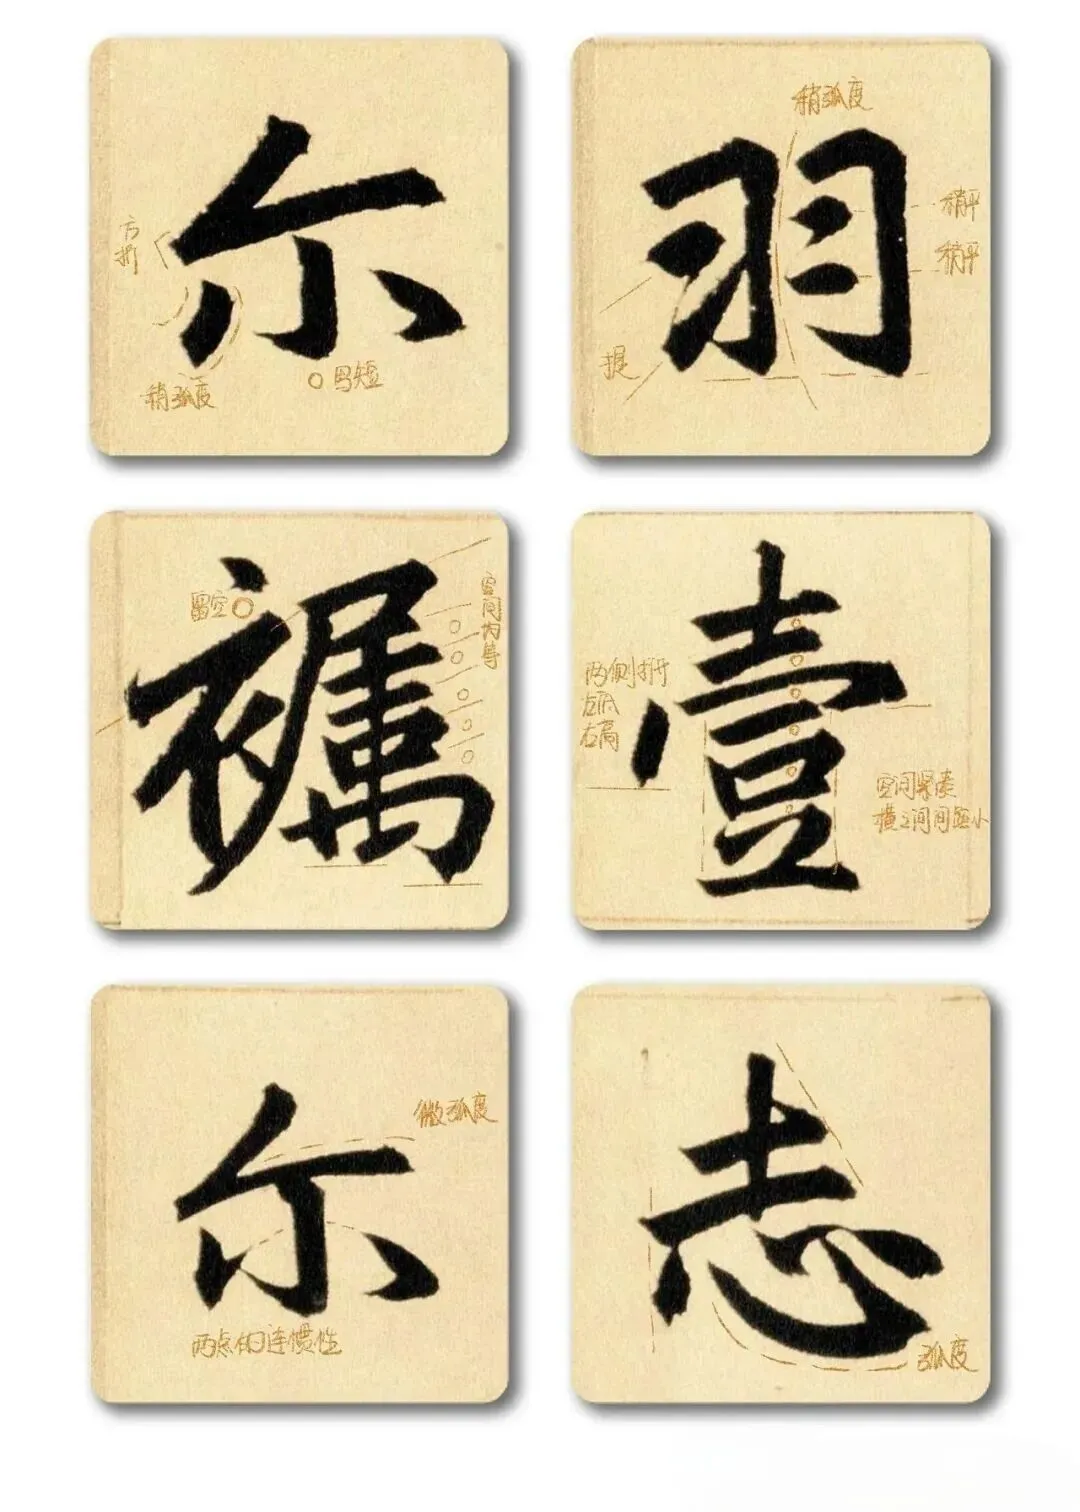 尔
方折
稍弧度
留短
稍弧度
羽
稍平
稍平
提
留空
空间均等
壹
两侧打开
左低
右高
空间紧凑
横之间间距小
微弧度
尔
两点的连惯性
志
弧度